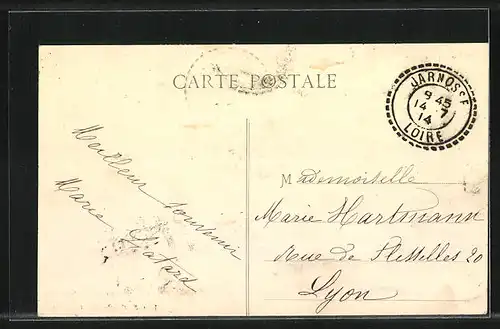 CARTE POSTALE
JARNOSSE
9 45
14 7
14
LOIRE
Meilleur souvenir
Marie
Mademoiselle
Marie Hartmann
Rue de Flesselles 20
Lyon